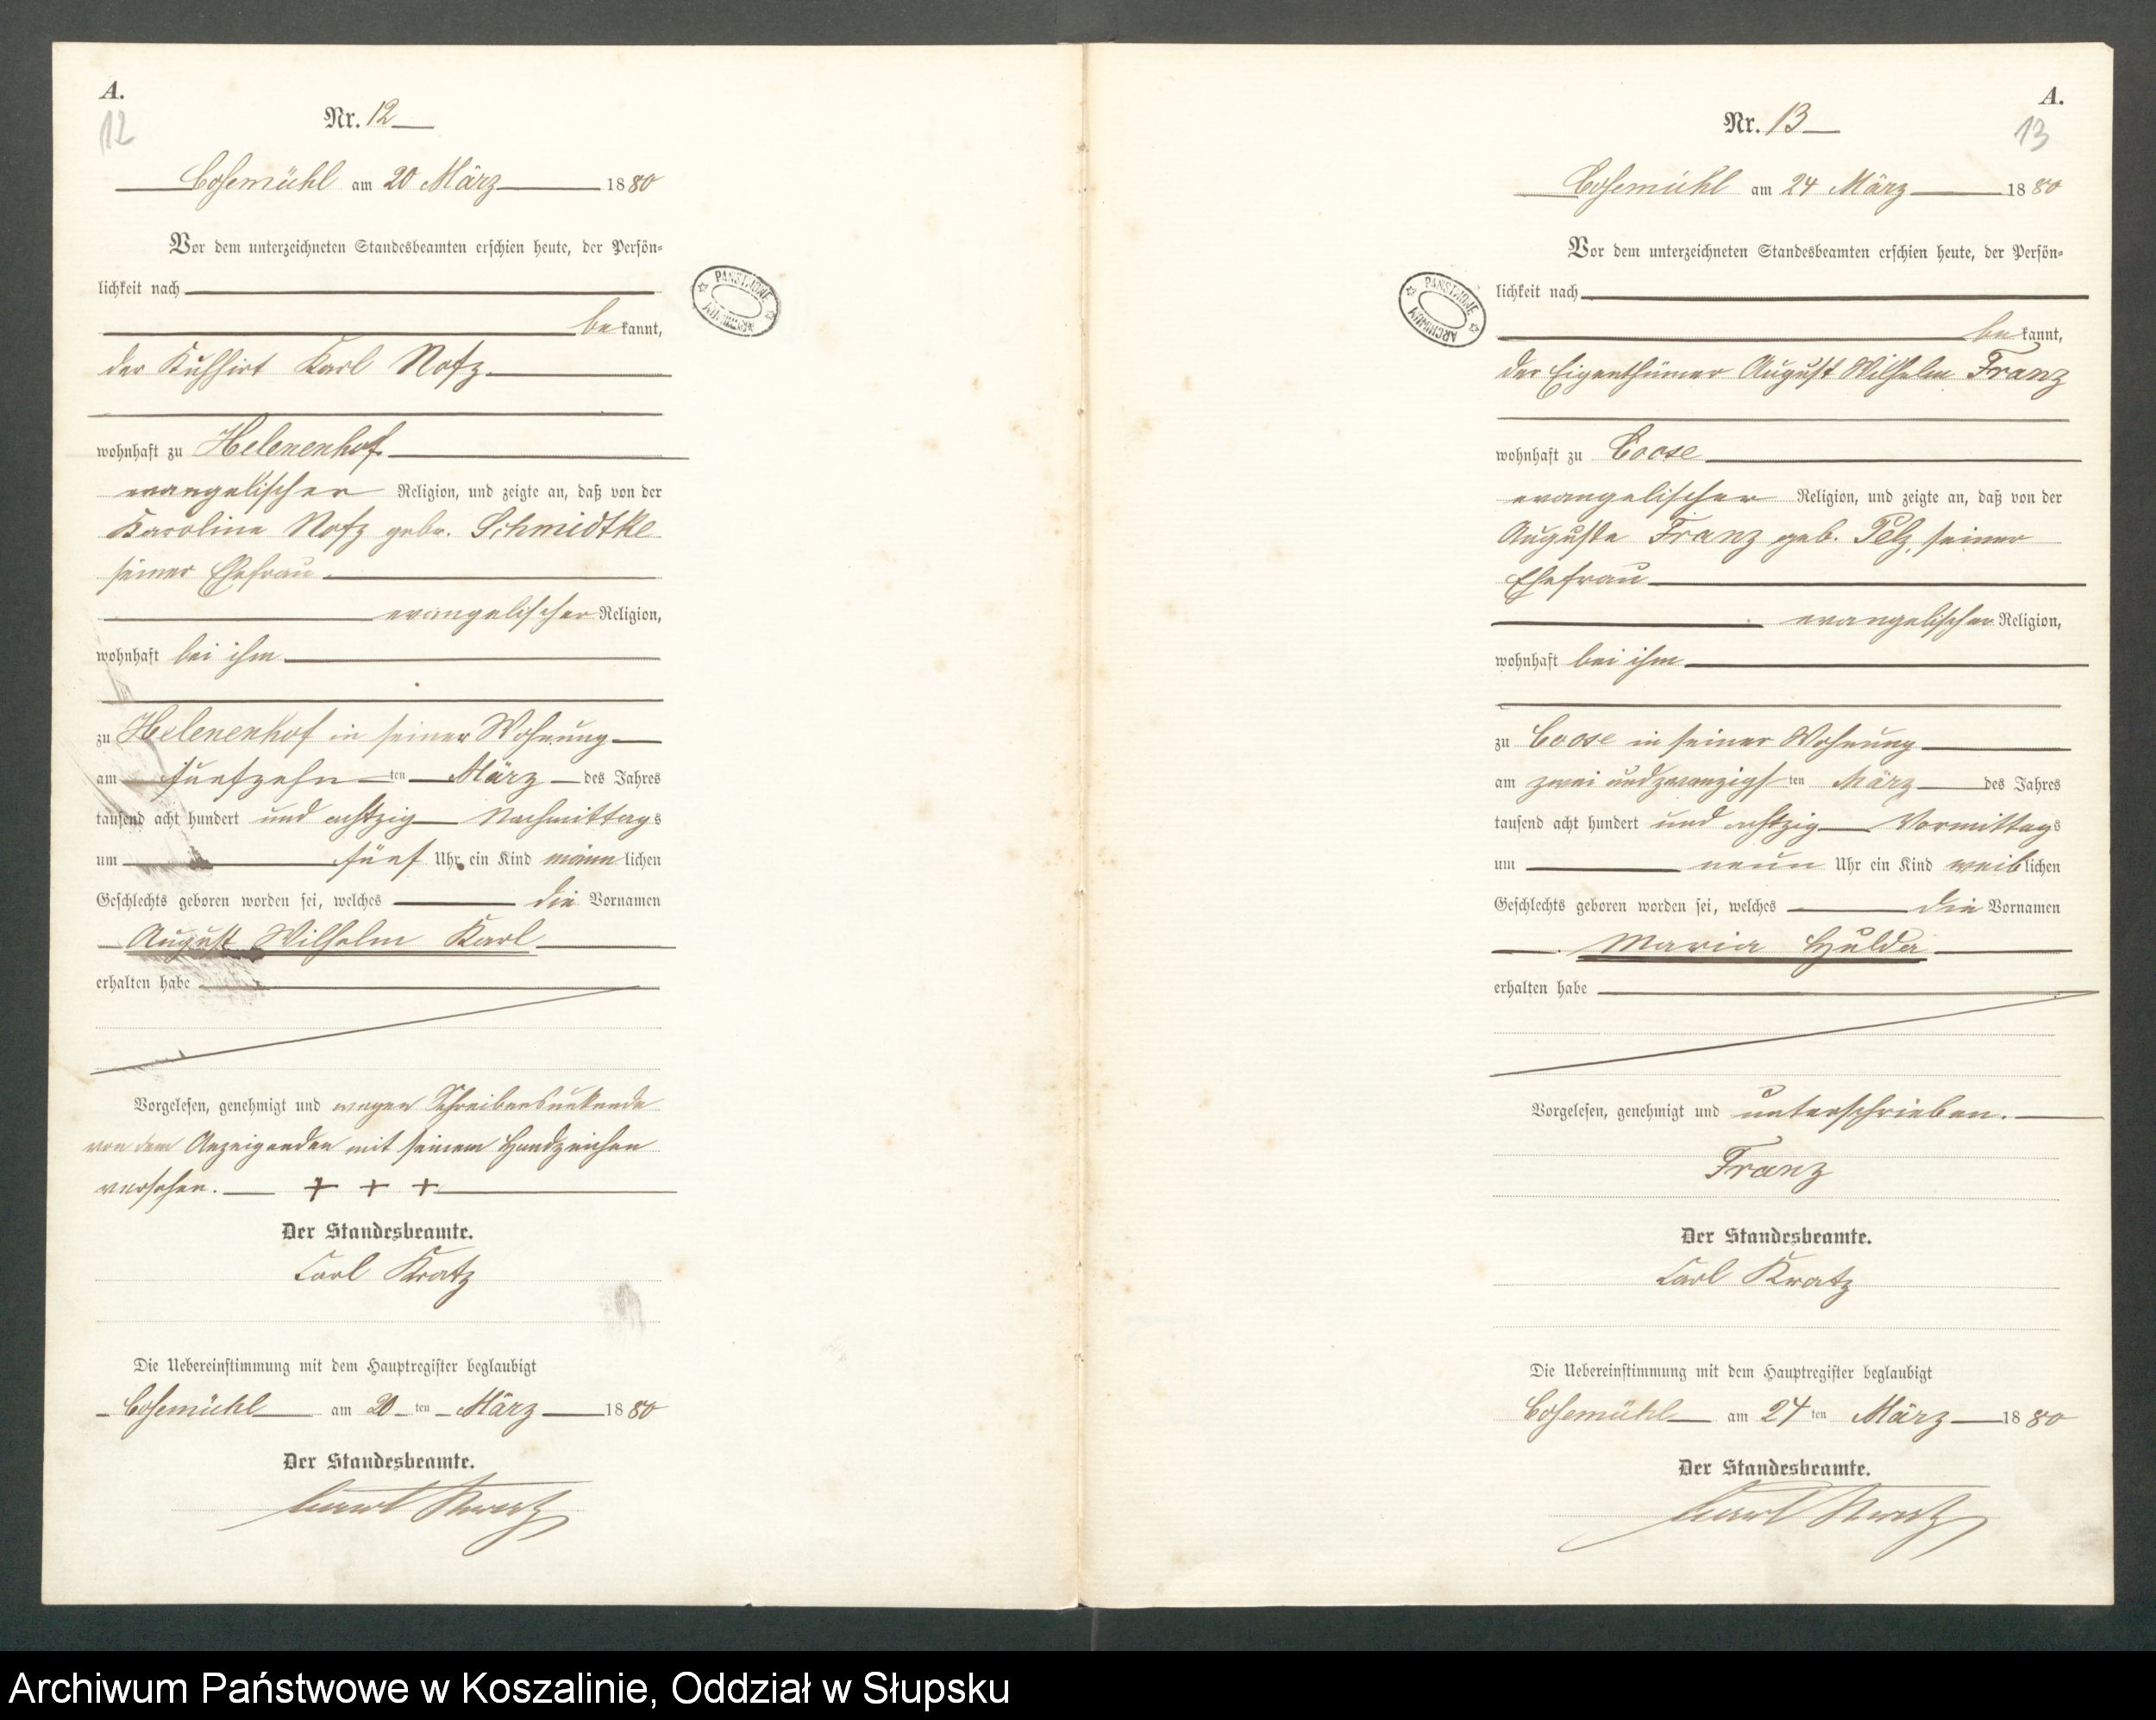 A.
12
Nr. 12
Cosemühl am 20 März 1880
Vor dem unterzeichneten Standesbeamten erschien heute, der Persön-
lichkeit nach
bekannt,
der Kuhhirt Karl Notz
wohnhaft zu Helenenhof
evangelischer Religion, und zeigte an, daß von der
Karoline Notz gebr. Schmidtke
seiner Ehefrau
evangelischer Religion,
wohnhaft bei ihm
zu Helenenhof in seiner Wohnung
am fünfzehn ten März des Jahres
tausend acht hundert und achtzig Nachmittags
um fünf Uhr ein Kind männlichen
Geschlechts geboren worden sei, welches die Vornamen
August Wilhelm Karl
erhalten habe
Vorgelesen, genehmigt und wegen Schreibensunkunde
von dem Anzeigenden mit seinem Handzeichen
versehen. + + +
Der Standesbeamte.
Carl Kratz
Die Uebereinstimmung mit dem Hauptregister beglaubigt
Cosemühl am 20 ten März 1880
Der Standesbeamte.
Carl Kratz
PAŃSTWOWE ARCHIWUM
A.
13
Nr. 13
Cosemühl am 24 März 1880
Vor dem unterzeichneten Standesbeamten erschien heute, der Persön-
lichkeit nach
bekannt,
der Eigenthümer August Wilhelm Franz
wohnhaft zu Coose
evangelischer Religion, und zeigte an, daß von der
Auguste Franz geb. Pelz, seiner
Ehefrau
evangelischer Religion,
wohnhaft bei ihm
zu Coose in seiner Wohnung
am zwei und zwanzigsten März des Jahres
tausend acht hundert und achtzig Vormittags
um neun Uhr ein Kind weiblichen
Geschlechts geboren worden sei, welches die Vornamen
Maria Hulda
erhalten habe
Vorgelesen, genehmigt und unterschrieben.
Franz
Der Standesbeamte.
Carl Kratz
Die Uebereinstimmung mit dem Hauptregister beglaubigt
Cosemühl am 24 ten März 1880
Der Standesbeamte.
Carl Kratz
PAŃSTWOWE ARCHIWUM
Archiwum Państwowe w Koszalinie, Oddział w Słupsku